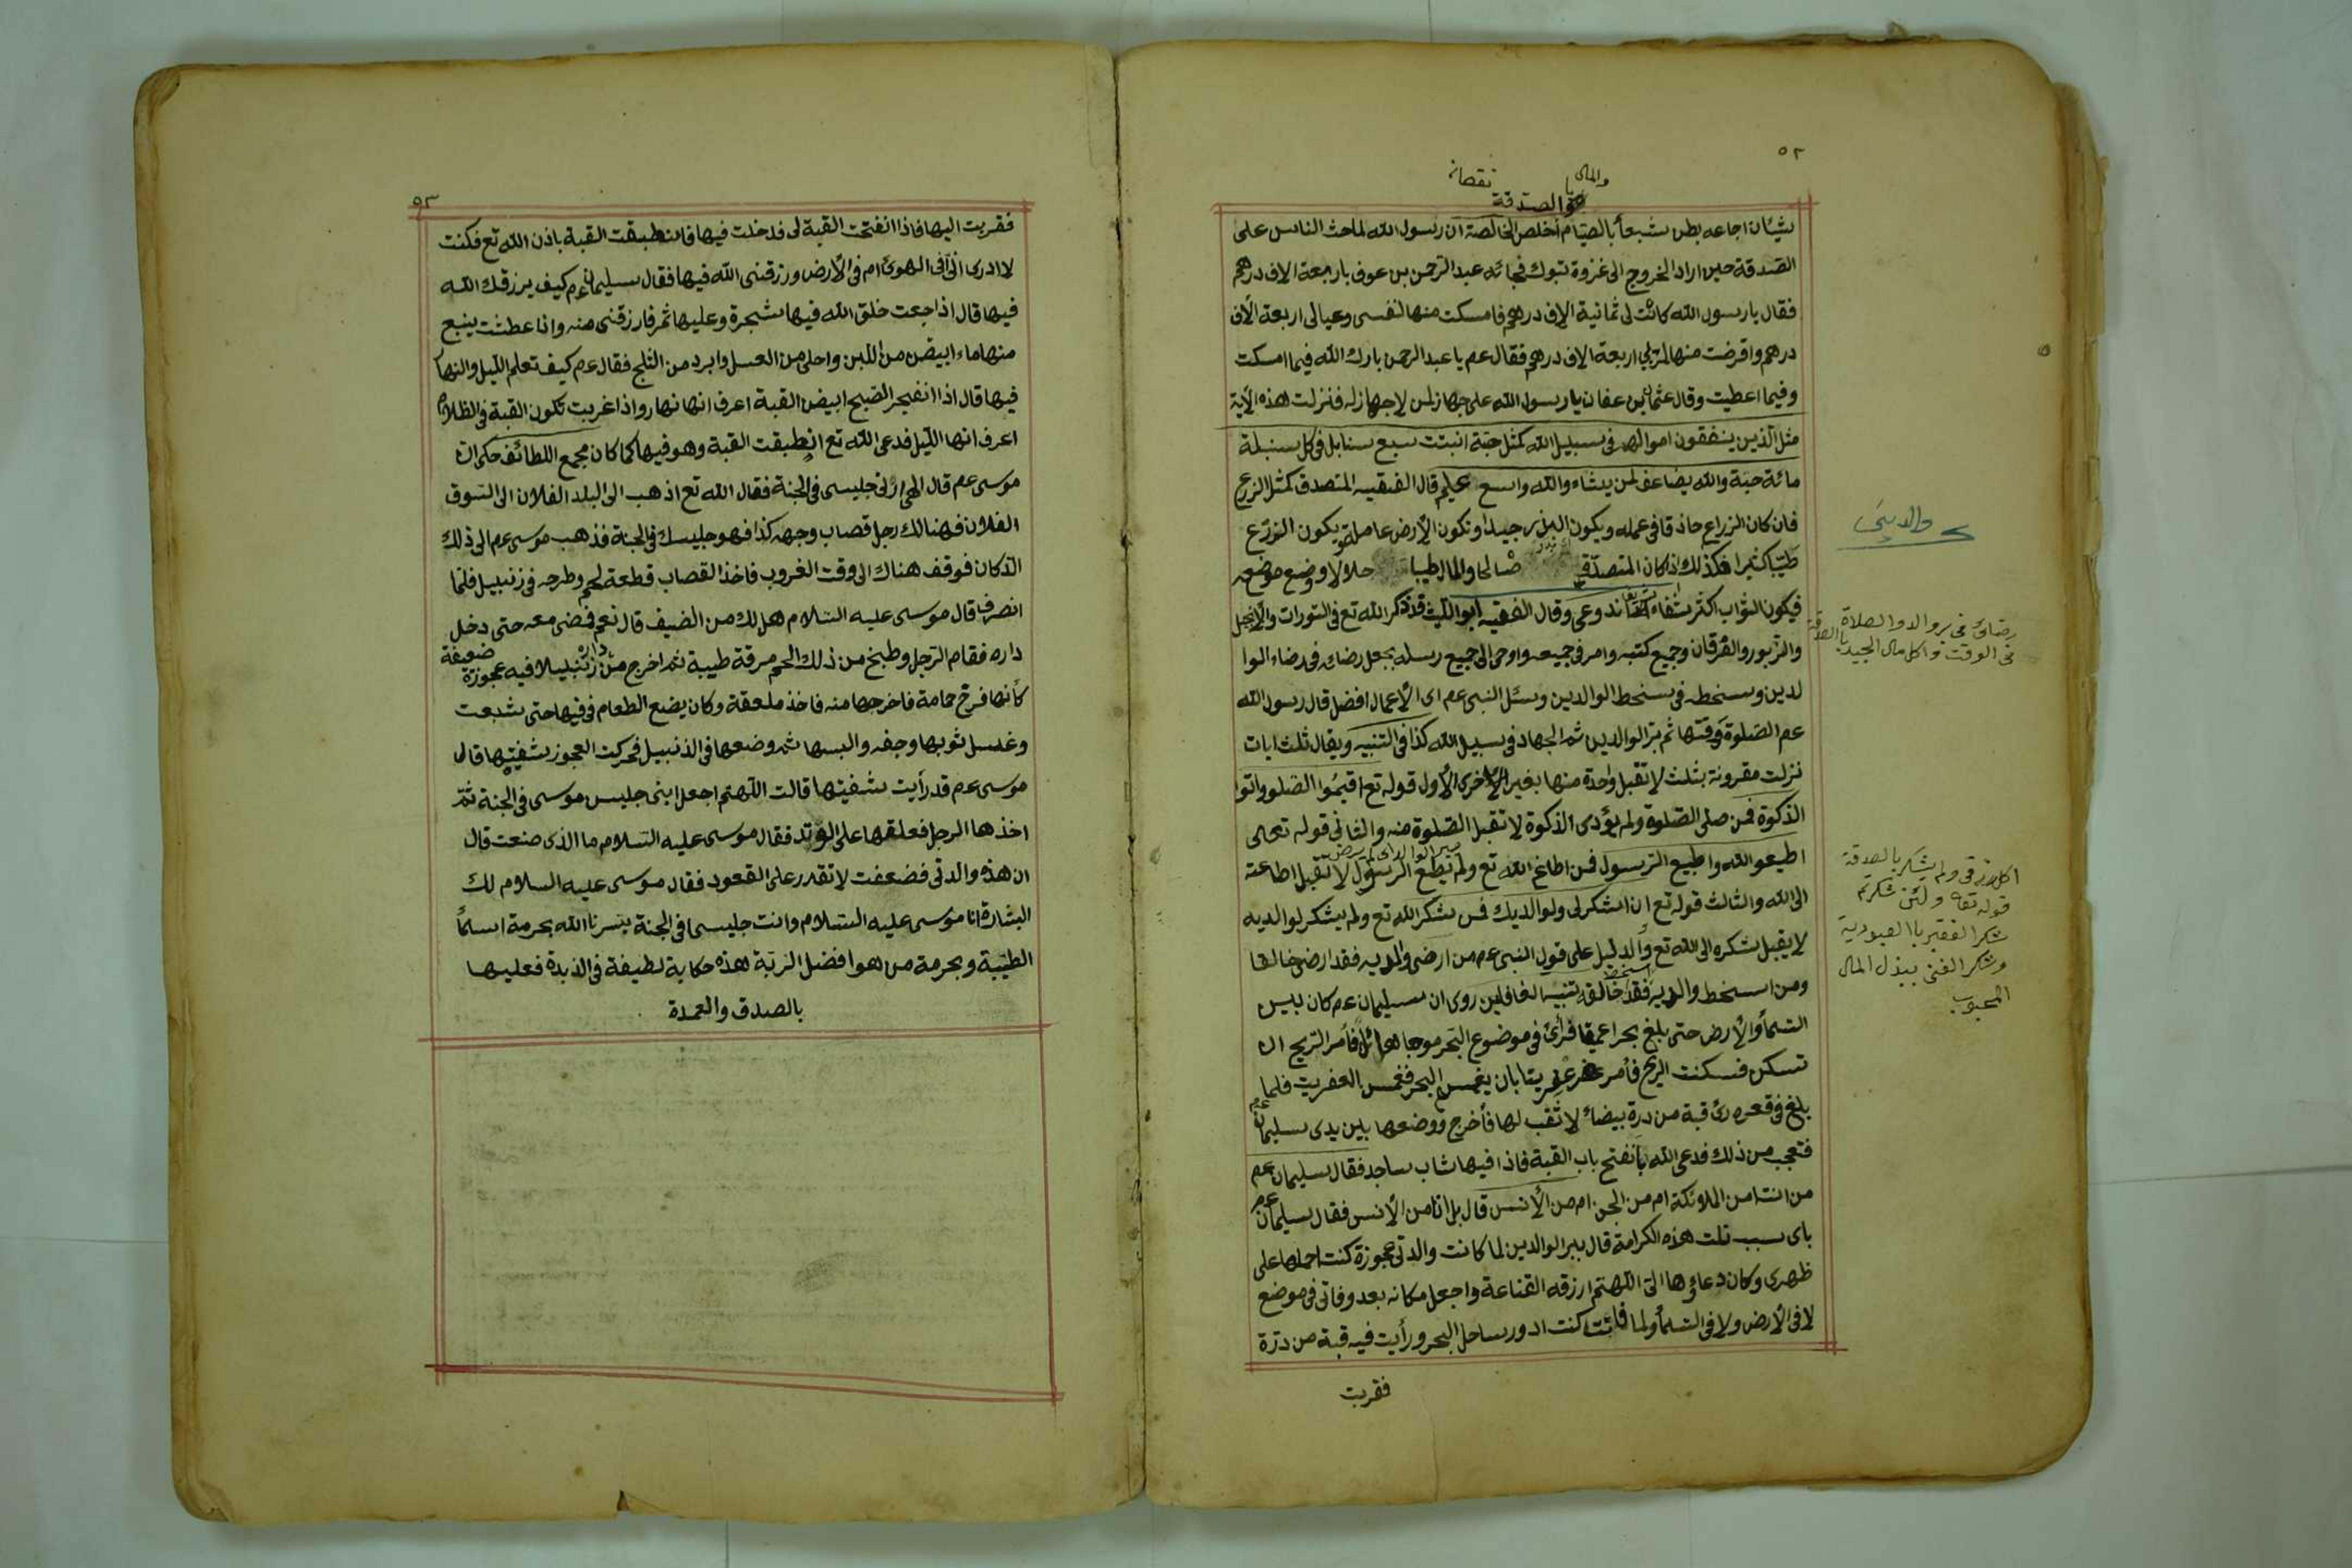 ٥٢
والمال
نقصانه
والصدقة
بشيئان اجاعه بطن شبعاً بالصيام أخلص الخالصة ان رسول الله لما حث الناس على
الصدقة حين اراد الخروج الى غزوة تبوك فجائه عبد الرحمن بن عوف باربعة الاف درهم
فقال يا رسول الله كانت لى ثمانية الاف درهم فامسكت منها لنفسى وعيالى اربعة الاف
درهم واقرضت منها لربي اربعة الاف درهم فقال عم يا عبد الرحمن بارك الله فيما امسكت
وفيما اعطيت وقال عثمان بن عفان يا رسول الله على جهاز لمن لاجهاز له فنزلت هذه الأية
مثل الذين ينفقون اموالهم فى سبيل الله كمثل حبة انبتت سبع سنابل فى كل سنبلة
مائة حبة والله يضاعف لمن يشاء والله واسع عليم قال الفقيه المتصدق كمثل الزرع
فان كان الزراع حاذقا فى عمله ويكون البذر جيدا وتكون الأرض عامرة يكون الزرع
طيبا كثيرا فكذلك اذا كان المتصدق صالحا والمال طيبا حلالا ووضع موضعه
فيكون الثواب اكثر وقال الفقيه ابو الليث قد ذكر الله تع فى التورات والأنجيل
والزبور والفرقان وجميع كتبه وامر فى جميعه واوحى الى جميع رسله بجعل رضائه فى رضاء الوا
لدين وسنخطه فى سنخط الوالدين وسئل النبى عم اى الأعمال افضل قال رسول الله
عم الصلوة وقتها ثم بر الوالدين ثم الجهاد فى سبيل الله كذا فى التنبيه ويقال ثلث ايات
نزلت مقرونة بثلث لا تقبل واحدة منها بغير الأخرى الأول قوله تع اقيموا الصلو واتوا
الذكوة فمن صلى الصلوة ولم يؤدى الذكوة لا تقبل الصلوة منه والثانى قوله تعالى
اطيعو الله واطيع الرسول فمن اطاغ الله تع ولم تطع الرسول لا تقبل اطاعته
الى الله والثالث قوله تع ان اشكر لى ولوالديك فمن شكر الله تع ولم يشكر لوالديه
لا يقبل شكره الى الله تع والدليل على قول النبى عم من ارضى والديه فقد ارضى خالقا
ومن اسنخط والديه فقد اسنخط خالقه تنبيه الغافلين روى ان سليمان عم كان يسير
السمأ والأرض حتى بلغ بحرا عميقا فرأى فى موضوع البحر موجا هائلا فأمر الريح ان
تسكن فسكنت الريح فأمر عفريتا بان يغمس البحر فغمس العفريت فلما
بلغ فى قعره رئ قبة من درة بيضاء لا ثقب لها فأخرج ووضعها بين يدى سليمان عم
فتعجب من ذلك فدعى الله بانفتح باب القبة فاذا فيها شاب ساجد فقال سليمان عم
من انت امن الملائكة ام من الجن ام من الأنس قال بل انا من الأنس فقال سليمان عم
باى سبب نلت هذه الكرامة قال ببر الوالدين لما كانت والدتى عجوزة كنت احملها على
ظهرى وكان دعاؤها الى اللهم ارزقه القناعة واجعل مكانه بعد وفاتى فى موضع
لا فى الأرض ولا فى السمأ ولما فاتت كنت ادور ساحل البحر ورأيت فيه قبة من درة
فقربت
والدين
رضائ فى بر والد والصلاة
فى الوقت واكل مال الجيد بالصدقة
اكل رزقى ولم يشكر بالصدقة
قوله تعا ولئن شكرتم
شكر الفقير باالعبودية
وشكر الغنى ببذل المال
المحبوب
٥٣
فقربت اليها فاذا انفتحت القبة لى فدخلت فيها فانطبقت القبة باذن الله تع فكنت
لا ادرى انى فى الهوئ ام فى الأرض ورزقنى الله فيها فقال سليمان عم كيف يرزقك الله
فيها قال اذا جعت خلق الله فيها شجرة وعليها ثمر فارزقنى منه واذا عطشت ينبع
منها ماء ابيض من اللبن واحلى من العسل وابرد من الثلج فقال عم كيف تعلم الليل والنهار
فيها قال اذا انفجر الصبح ابيض القبة اعرف انها نهار واذا غربت تكون القبة فى الظلام
اعرف انها الليل فدعى الله تع انطبقت القبة وهو فيها كما كان مجمع اللطائف حكى ان
موسى عم قال الهى ارنى جليسى فى الجنة فقال الله تع اذهب الى البلد الفلان الى السوق
الفلان فهنالك رجل قصاب وجهه كذا فهو جليسك فى الجنة فذهب موسى عم الى ذلك
الدكان فوقف هناك الى وقت الغروب فاخذ القصاب قطعة لحم وطرحه فى زنبيل فلما
انصرف قال موسى عليه السلام هل لك من الضيف قال نعم فمضى معه حتى دخل
داره فقام الرجل وطبخ من ذلك الحم مرقة طيبة ثم اخرج من داره زنبيلا فيه عجوزة ضعيفة
كأنها فرخ حمامة فاخرجها منه فاخذ ملعقة وكان يضع الطعام فى فيها حتى شبعت
وغسل ثوبها وجفه والبسها ثم وضعها فى الذنبيل فحركت العجوز شفيتها قال
موسى عم قد رأيت شفيتها قالت اللهم اجعل ابنى جليس موسى فى الجنة ثم
اخذها الرجل فعلقها على الوتد فقال موسى عليه السلام ما الذى صنعت قال
ان هذه والدتى فضعفت لا تقدر على القعود فقال موسى عليه السلام لك
البشارة انا موسى عليه السلام وانت جليسى فى الجنة يسرنا الله بحرمة اسمأ
الطيبة وبحرمة من هو افضل الرتبة هذه حكاية لطيفة فى الذبدة فعليها
بالصدق والعمدة